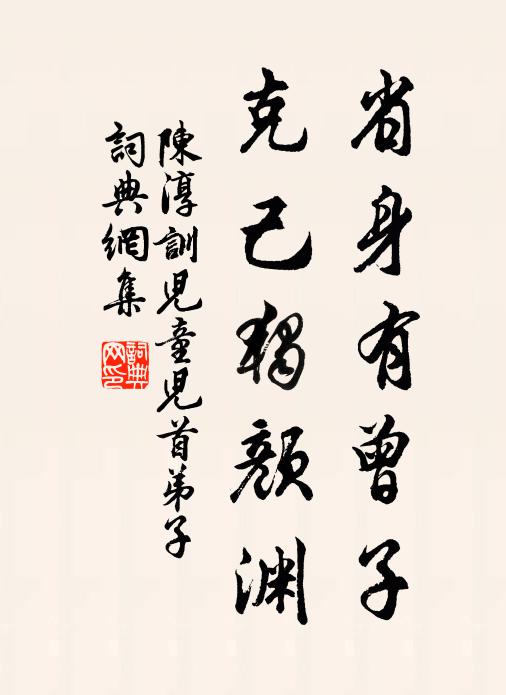 省身有曾子
克己独顔渊
陳淳訓兒童兒首弟子
詞典網集
詞典网印